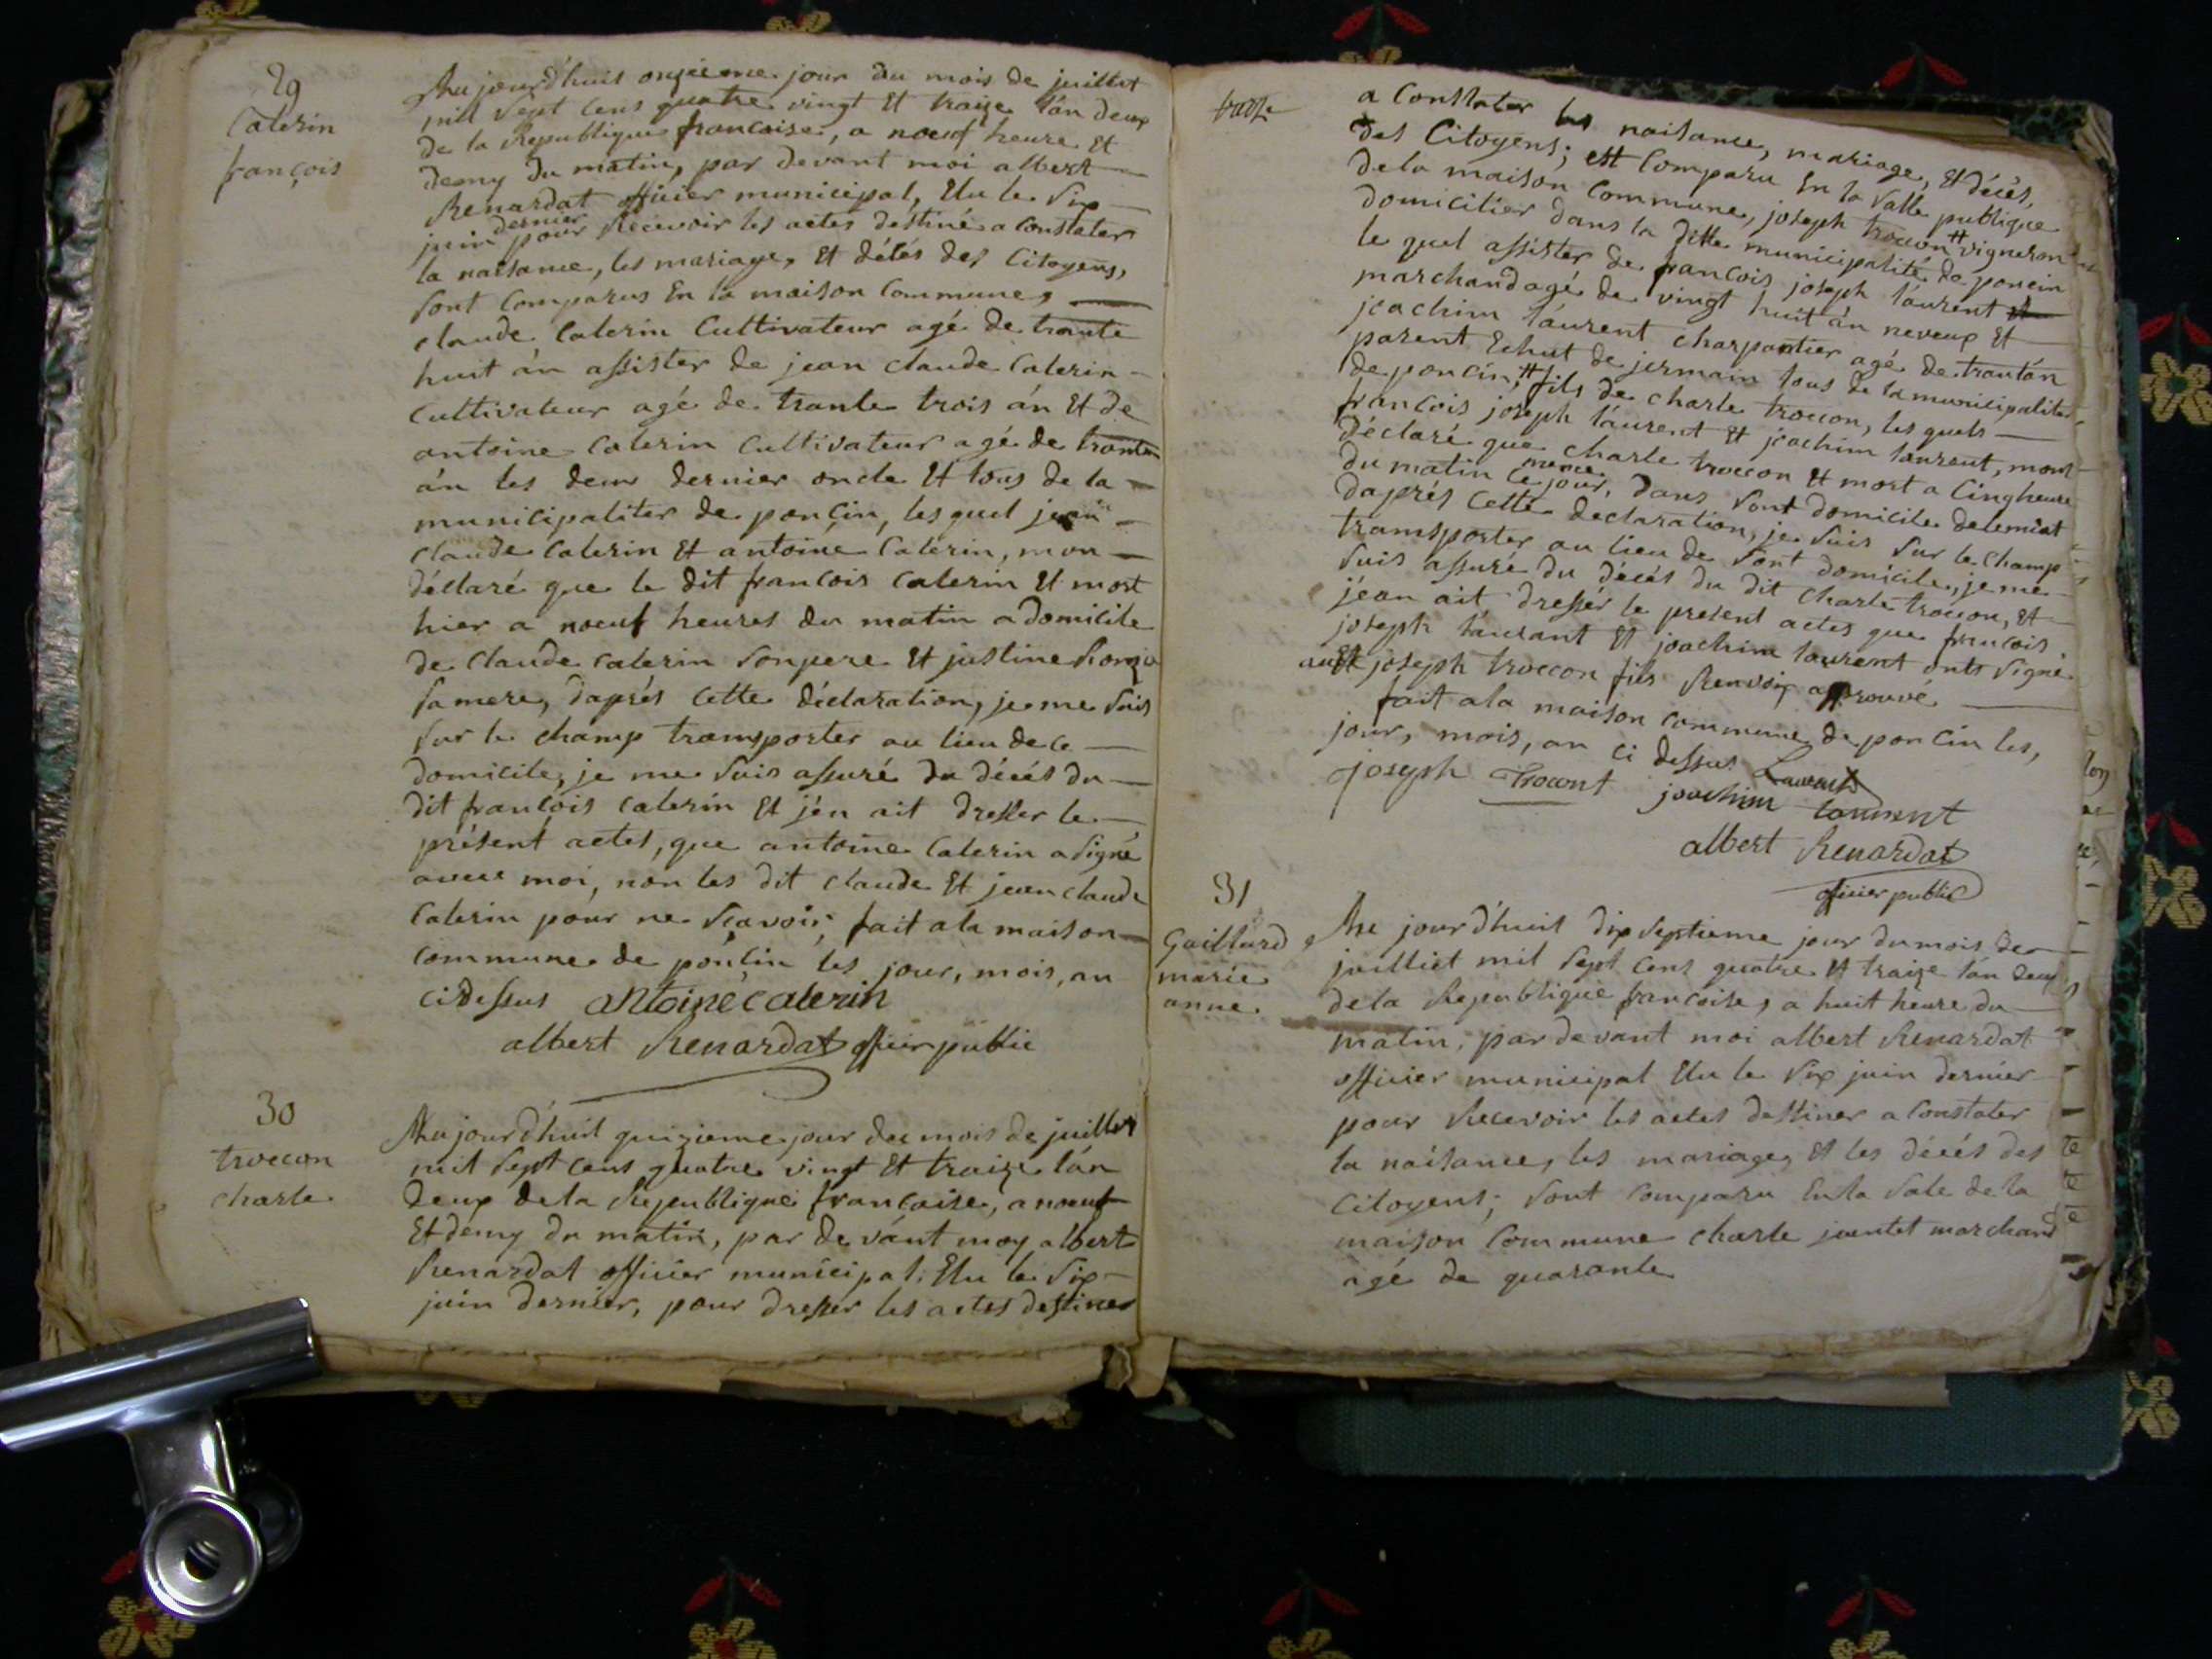 29
Caterin
françois
Au jourd'huit onzieme jour du mois de juillet
mill sept cens quatre vingt et traize l'an deux
de la Republique francoise, a noeuf heure et
demy du matin, par devant moi albert
Renardat officier municipal, Elu le six
juin dernier pour Recevoir les actes destiné a Constater
la naisance, les mariage, et déces des Citoyens,
sont Comparus En la maison Commune,
claude Caterin Cultivateur agé de trante
huit án assister de jean claude Caterin
Cultivateur agé de trante trois án Et de
antoine Caterin Cultivateur agé de trante
án les deux dernier oncle Et tous de la
municipaliter de poncin, les quel jean
claude Caterin Et antoine Caterin, mon
déclaré que le dit francois Caterin Et mort
hier a noeuf heures du matin a Domicile
de Claude Caterin son pere Et justine
sa mere, d'aprés cette déclaration, je me suis
sur le champ transporter au lieu de ce
domicile, je me suis assuré du décés du
dit françois Caterin Et j'én ait dresser le
présent actes, que antoine Caterin a signé
avec moi, non les dit claude Et jean claude
Caterin pour ne sçavoir, fait a la maison
Commune de poncin les jour, mois, an
ci dessus antoine caterin
albert Renardat officier public
30
troccon
charle
Au jourd'huit quinzieme jour du mois de juillet
mil sept cens quatre vingt Et traize l'án
deux de la Republique françoise, a noeuf
Et demy du matin, par de vánt moy albert
Renardat officier municipal, Elu le six
juin dernier, pour dresser les actes destiner
a Constater les naisance, mariage, Et décés,
des Citoyens; est Comparu En la salle publique
de la maison Commune, joseph troccon # vigneron
domicilier dans la ditte municipalité de poncin
le quel assister de francois joseph laurent
marchand agé de vingt huit án neveux Et
joachim laurent charpantier agé de trant án
parent Echut de jermain tous de la municipaliter
de poncin, # fils de charle troccon, les quels
francois joseph laurent Et joachim laurent, mont
déclaré que charle troccon Et mort a Cinq heure
du matin Ce meme jour, dans sont domicile
d'aprés Cette declaration, je suis sur le champ
transporter au lieu de sont domicile, je me
suis assuré du décés du dit charle troccon, Et
j'éan ait dressér le present actes que francois
joseph laurant Et joachim laurent onts signé
Et joseph troccon fils Renvoix approuvé
fait a la maison commune de poncin les,
jour, mois, an ci dessus Laurent
joseph Trocont joachim laurent
albert Renardat
officier public
31
Gaillard
marie
anne
Au jourd'huit dix septieme jour du mois de
juilliet mil sept cens quatre Et traize l'án deux
de la Republique françoise, a huit heure du
matin, par devant moi albert Renardat
officier municipal Elu le six juin dernier
pour Recevoir les actes destiner a Constater
la naisance, les mariage, Et les décés des
Citoyens; sont Comparu En la sale de la
maison Commune charle juentet marchand
agé de quarante